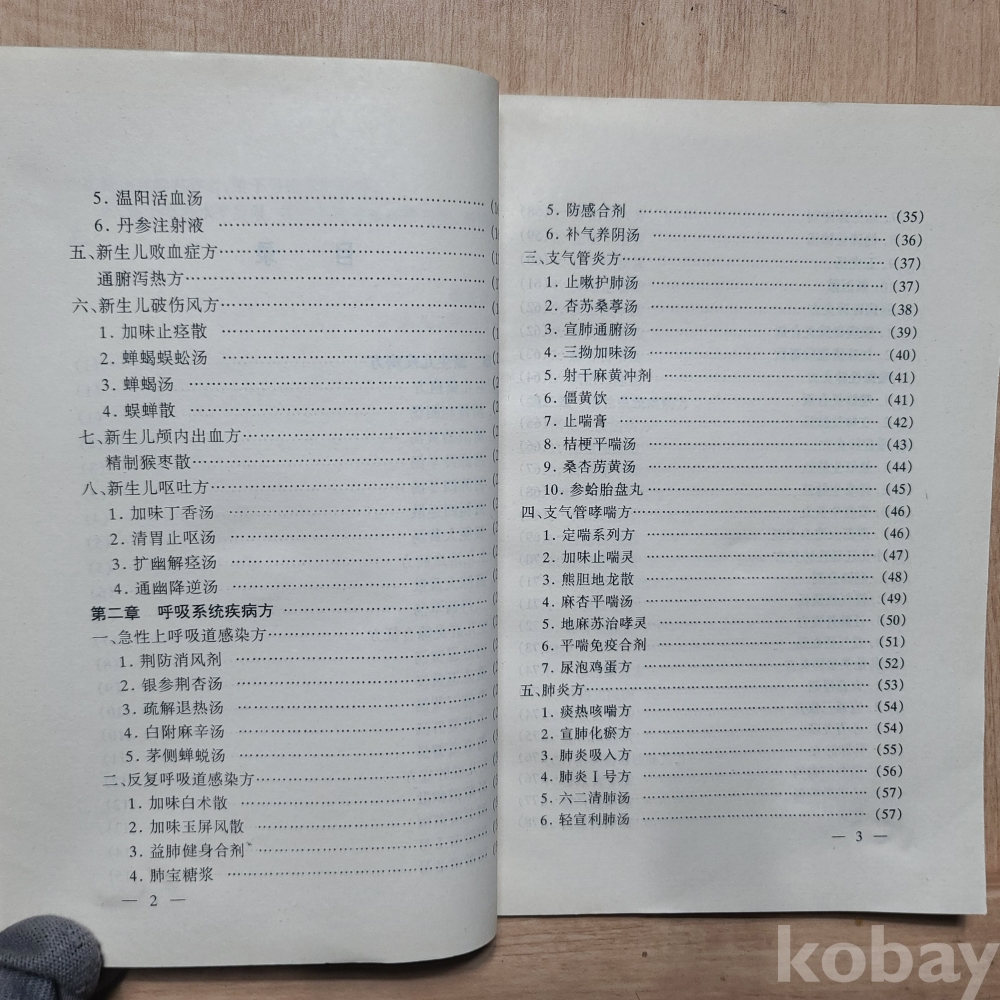 5. 温阳活血汤 ……………………………… (1
6. 丹参注射液 ……………………………… (1
五、新生儿败血症方 ……………………………… (1
通腑泻热方 ……………………………… (1
六、新生儿破伤风方 ……………………………… (1
1. 加味止痉散 ……………………………… (1
2. 蝉蝎蜈蚣汤 ……………………………… (
3. 蝉蝎汤 ……………………………… (2
4. 蜈蝉散 ……………………………… (2
七、新生儿颅内出血方 ……………………………… (2
精制猴枣散 ……………………………… (2
八、新生儿呕吐方 ……………………………… (2
1. 加味丁香汤 ……………………………… (
2. 清胃止呕汤 ……………………………… (
3. 扩幽解痉汤 ……………………………… (2
4. 通幽降逆汤 ……………………………… (2
第二章 呼吸系统疾病方 ……………………………… (
一、急性上呼吸道感染方 ……………………………… (2
1. 荆防消风剂 ……………………………… (2
2. 银参荆杏汤 ……………………………… (2
3. 疏解退热汤 ……………………………… (2
4. 白附麻辛汤 ……………………………… (
5. 茅侧蝉蜕汤 ……………………………… (
二、反复呼吸道感染方 ……………………………… (
1. 加味白术散 ……………………………… (
2. 加味玉屏风散 ……………………………… (
3. 益肺健身合剂 ……………………………… (
4. 肺宝糖浆 ……………………………… (
— 2 —
5. 防感合剂 ……………………………… (35)
6. 补气养阴汤 ……………………………… (36)
三、支气管炎方 ……………………………… (37)
1. 止嗽护肺汤 ……………………………… (37)
2. 杏苏桑葶汤 ……………………………… (38)
3. 宣肺通腑汤 ……………………………… (39)
4. 三拗加味汤 ……………………………… (40)
5. 射干麻黄冲剂 ……………………………… (41)
6. 僵黄饮 ……………………………… (41)
7. 止喘膏 ……………………………… (42)
8. 桔梗平喘汤 ……………………………… (43)
9. 桑杏苈黄汤 ……………………………… (44)
10. 参蛤胎盘丸 ……………………………… (45)
四、支气管哮喘方 ……………………………… (46)
1. 定喘系列方 ……………………………… (46)
2. 加味止喘灵 ……………………………… (47)
3. 熊胆地龙散 ……………………………… (48)
4. 麻杏平喘汤 ……………………………… (49)
5. 地麻苏治哮灵 ……………………………… (50)
6. 平喘免疫合剂 ……………………………… (51)
7. 尿泡鸡蛋方 ……………………………… (52)
五、肺炎方 ……………………………… (53)
1. 痰热咳喘方 ……………………………… (54)
2. 宣肺化瘀方 ……………………………… (54)
3. 肺炎吸入方 ……………………………… (55)
4. 肺炎Ⅰ号方 ……………………………… (56)
5. 六二清肺汤 ……………………………… (57)
6. 轻宣利肺汤 ……………………………… (57)
— 3 —
kobay